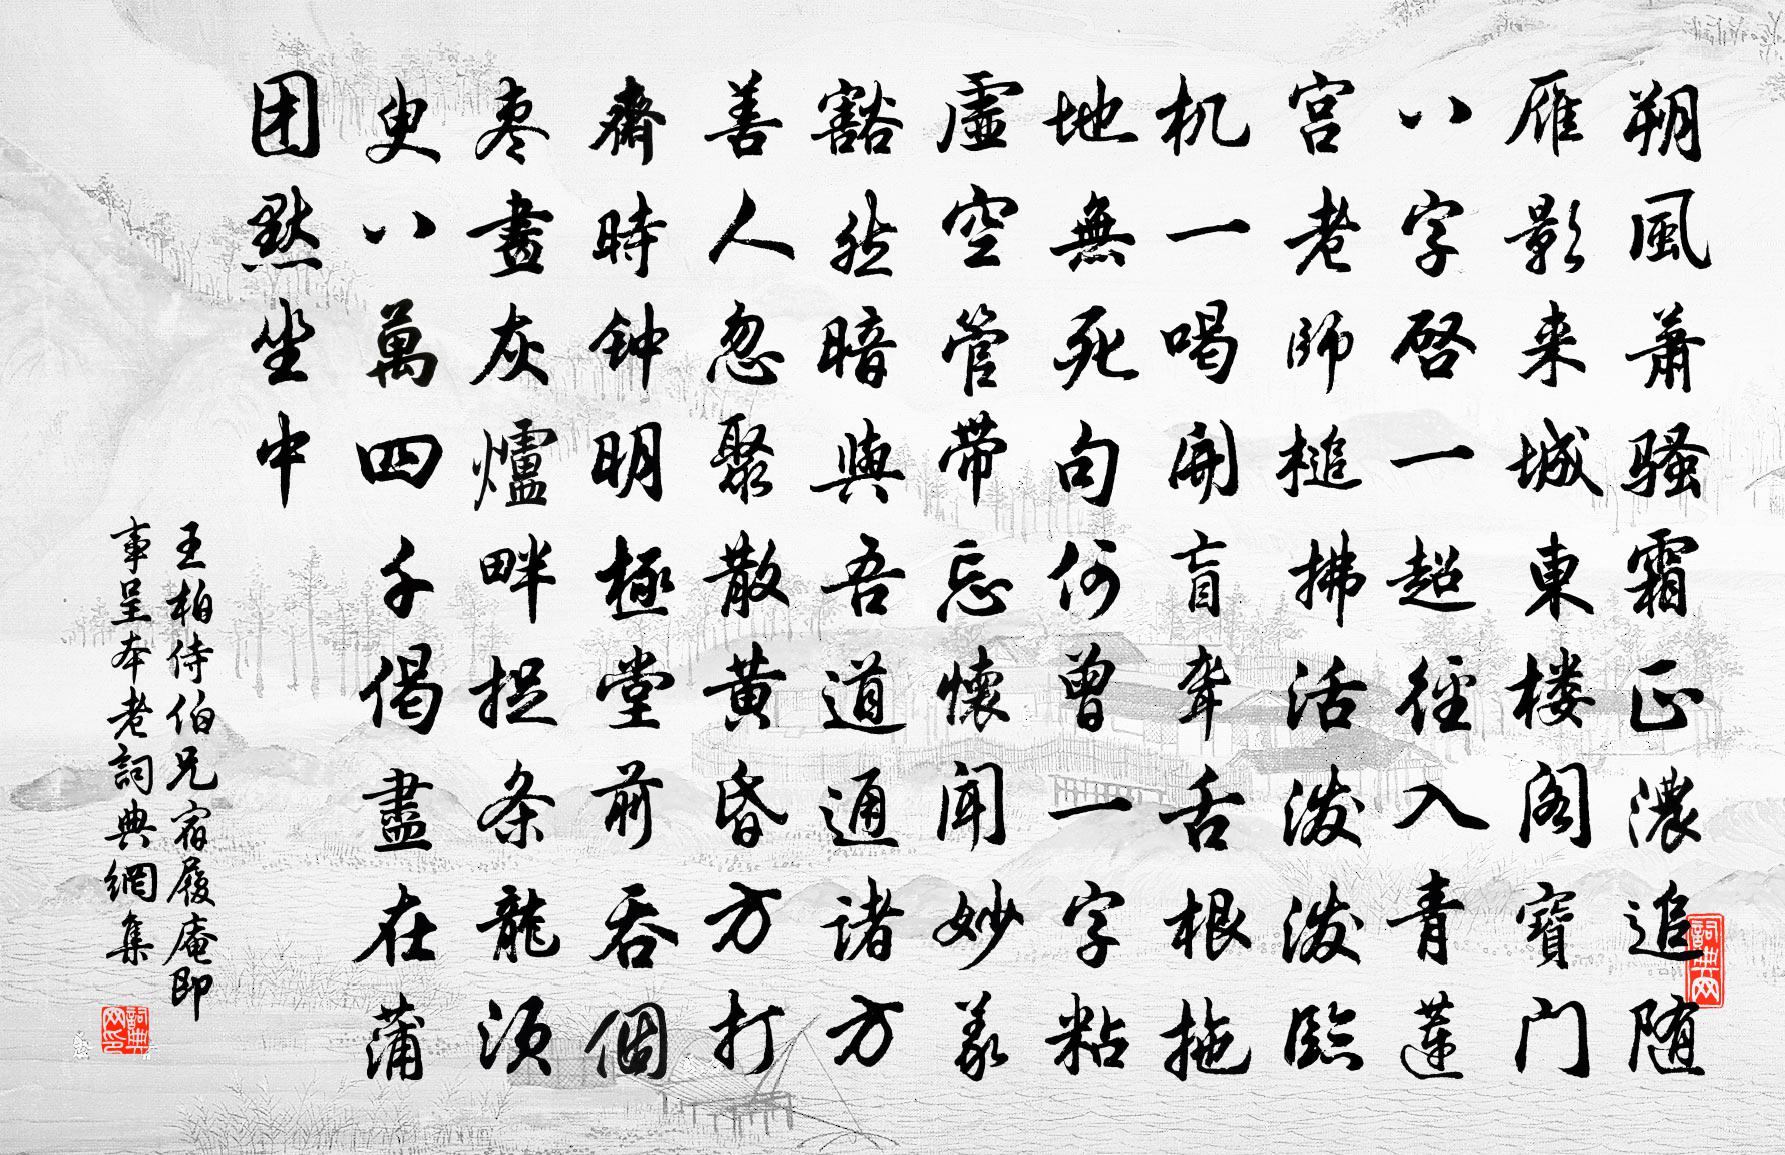 朔風萧骚霜正濃追随
雁影来城東楼阁寶门
八字啓一超径入青莲
宫老師槌拂活泼泼臨
机一喝開盲聋舌根拖
地無死句何曾一字粘
虚空管带忘懷闻妙義
豁然暗與吾道通诸方
善人忽聚散黄昏方打
齋時钟明極堂前吞個
枣畫灰爐畔捉条龍须
臾八萬四千偈盡在蒲
团默坐中
王柏侍伯兄宿履庵即
事呈本老詞典網集
詞典网
詞典网印